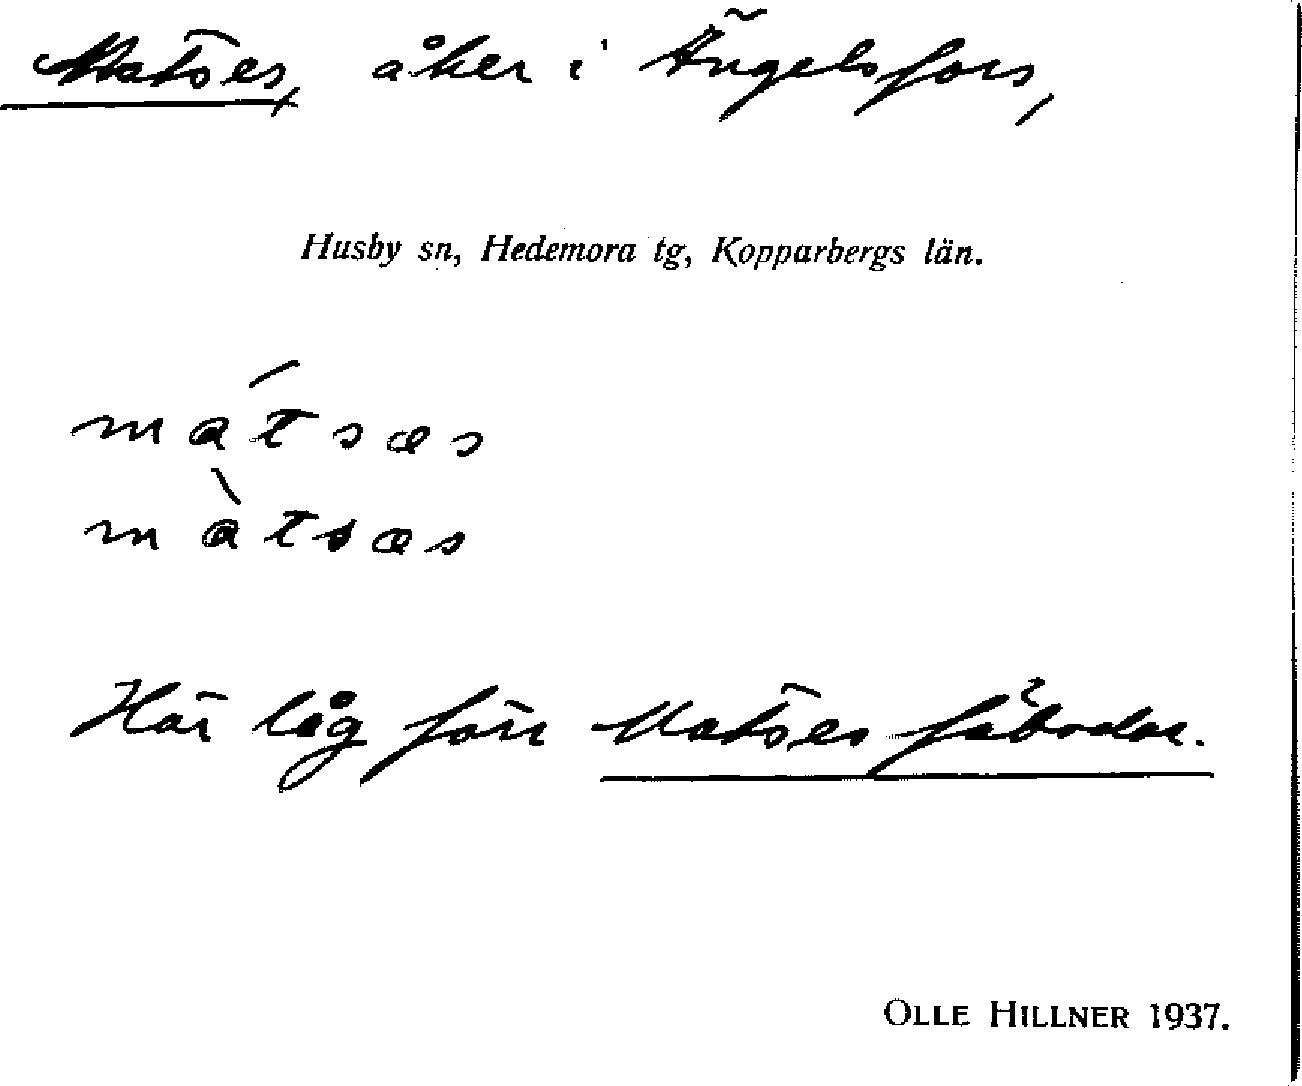 Matses, åker i Ängelsfors,
Husby sn, Hedemora tg, Kopparbergs län.
mátsæs
màtsæs
Här låg förr Matses fäbodar.
OLLE HILLNER 1937.